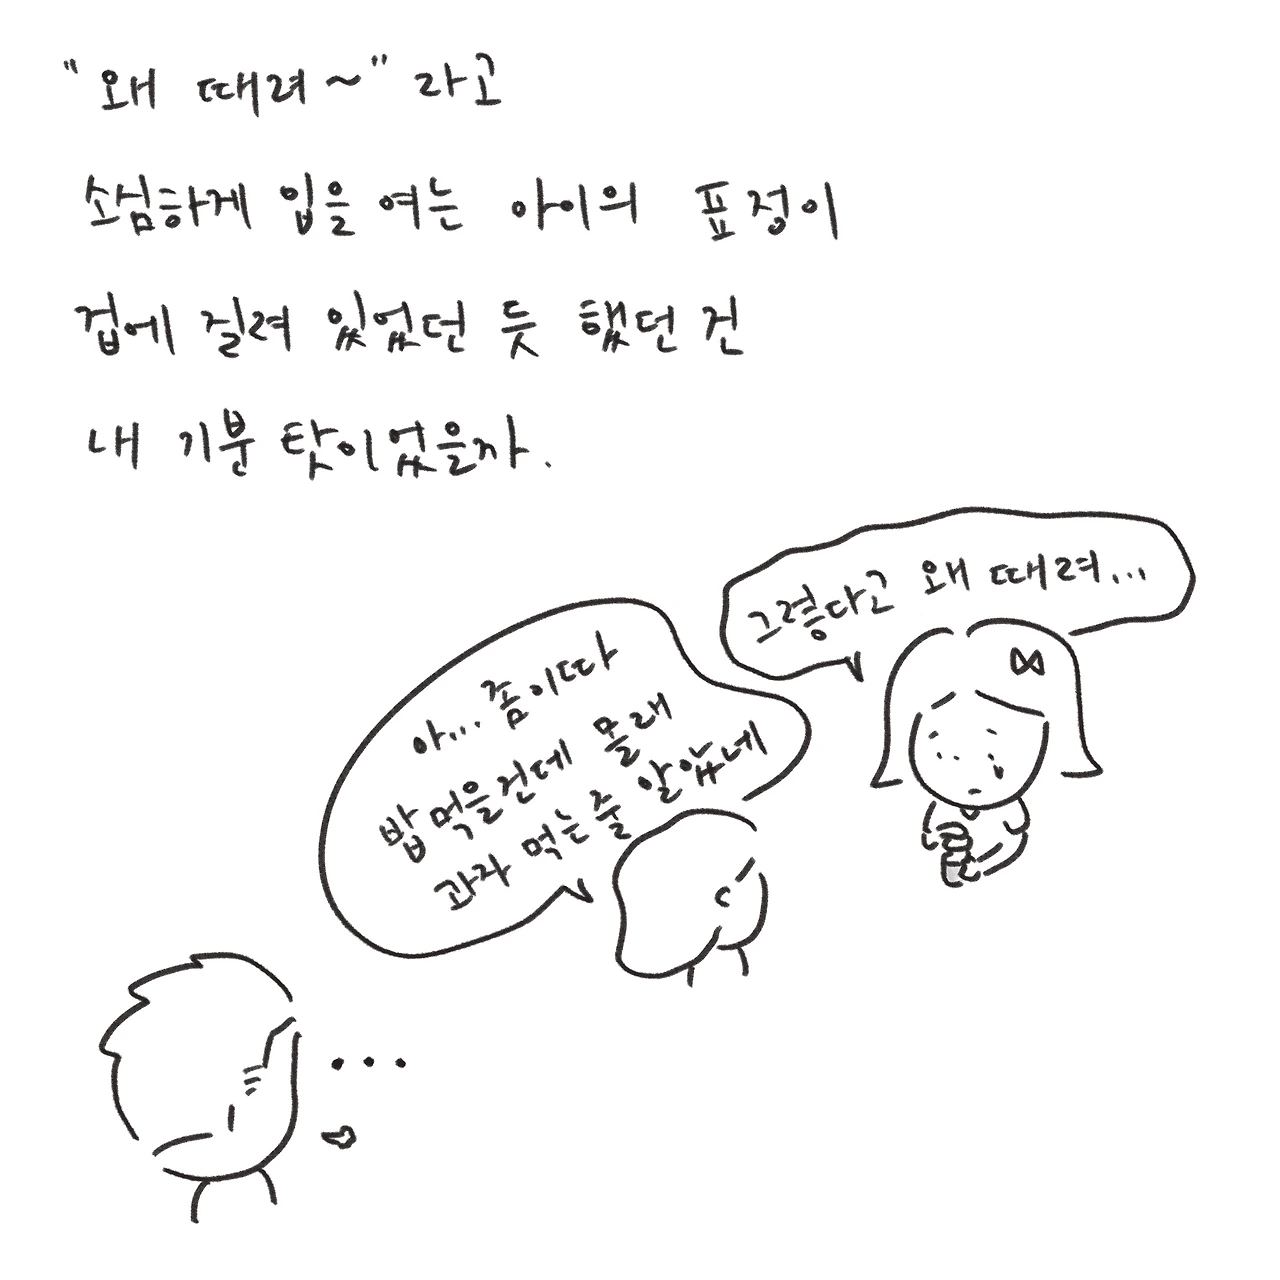 "왜 때려~" 라고
소심하게 입을 여는 아이의 표정이
겁에 질려 있었던 듯 했던 건
내 기분 탓이었을까.
그렇다고 왜 때려...
아... 좀이따
밥 먹을건데 몰래
과자 먹는줄 알았네
...